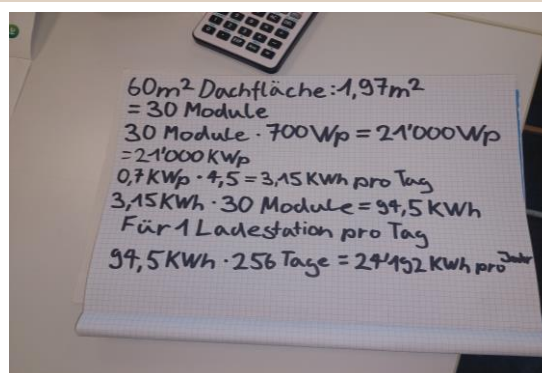 60m² Dachfläche:1,97m²
= 30 Module
30 Module · 700 Wp = 21'000 Wp
=21'000 KWp
0,7 KWp · 4,5 = 3,15 KWh pro Tag
3,15 KWh · 30 Module = 94,5 KWh
Für 1 Ladestation pro Tag
94,5 KWh · 256 Tage = 24'192 KWh pro Jahr